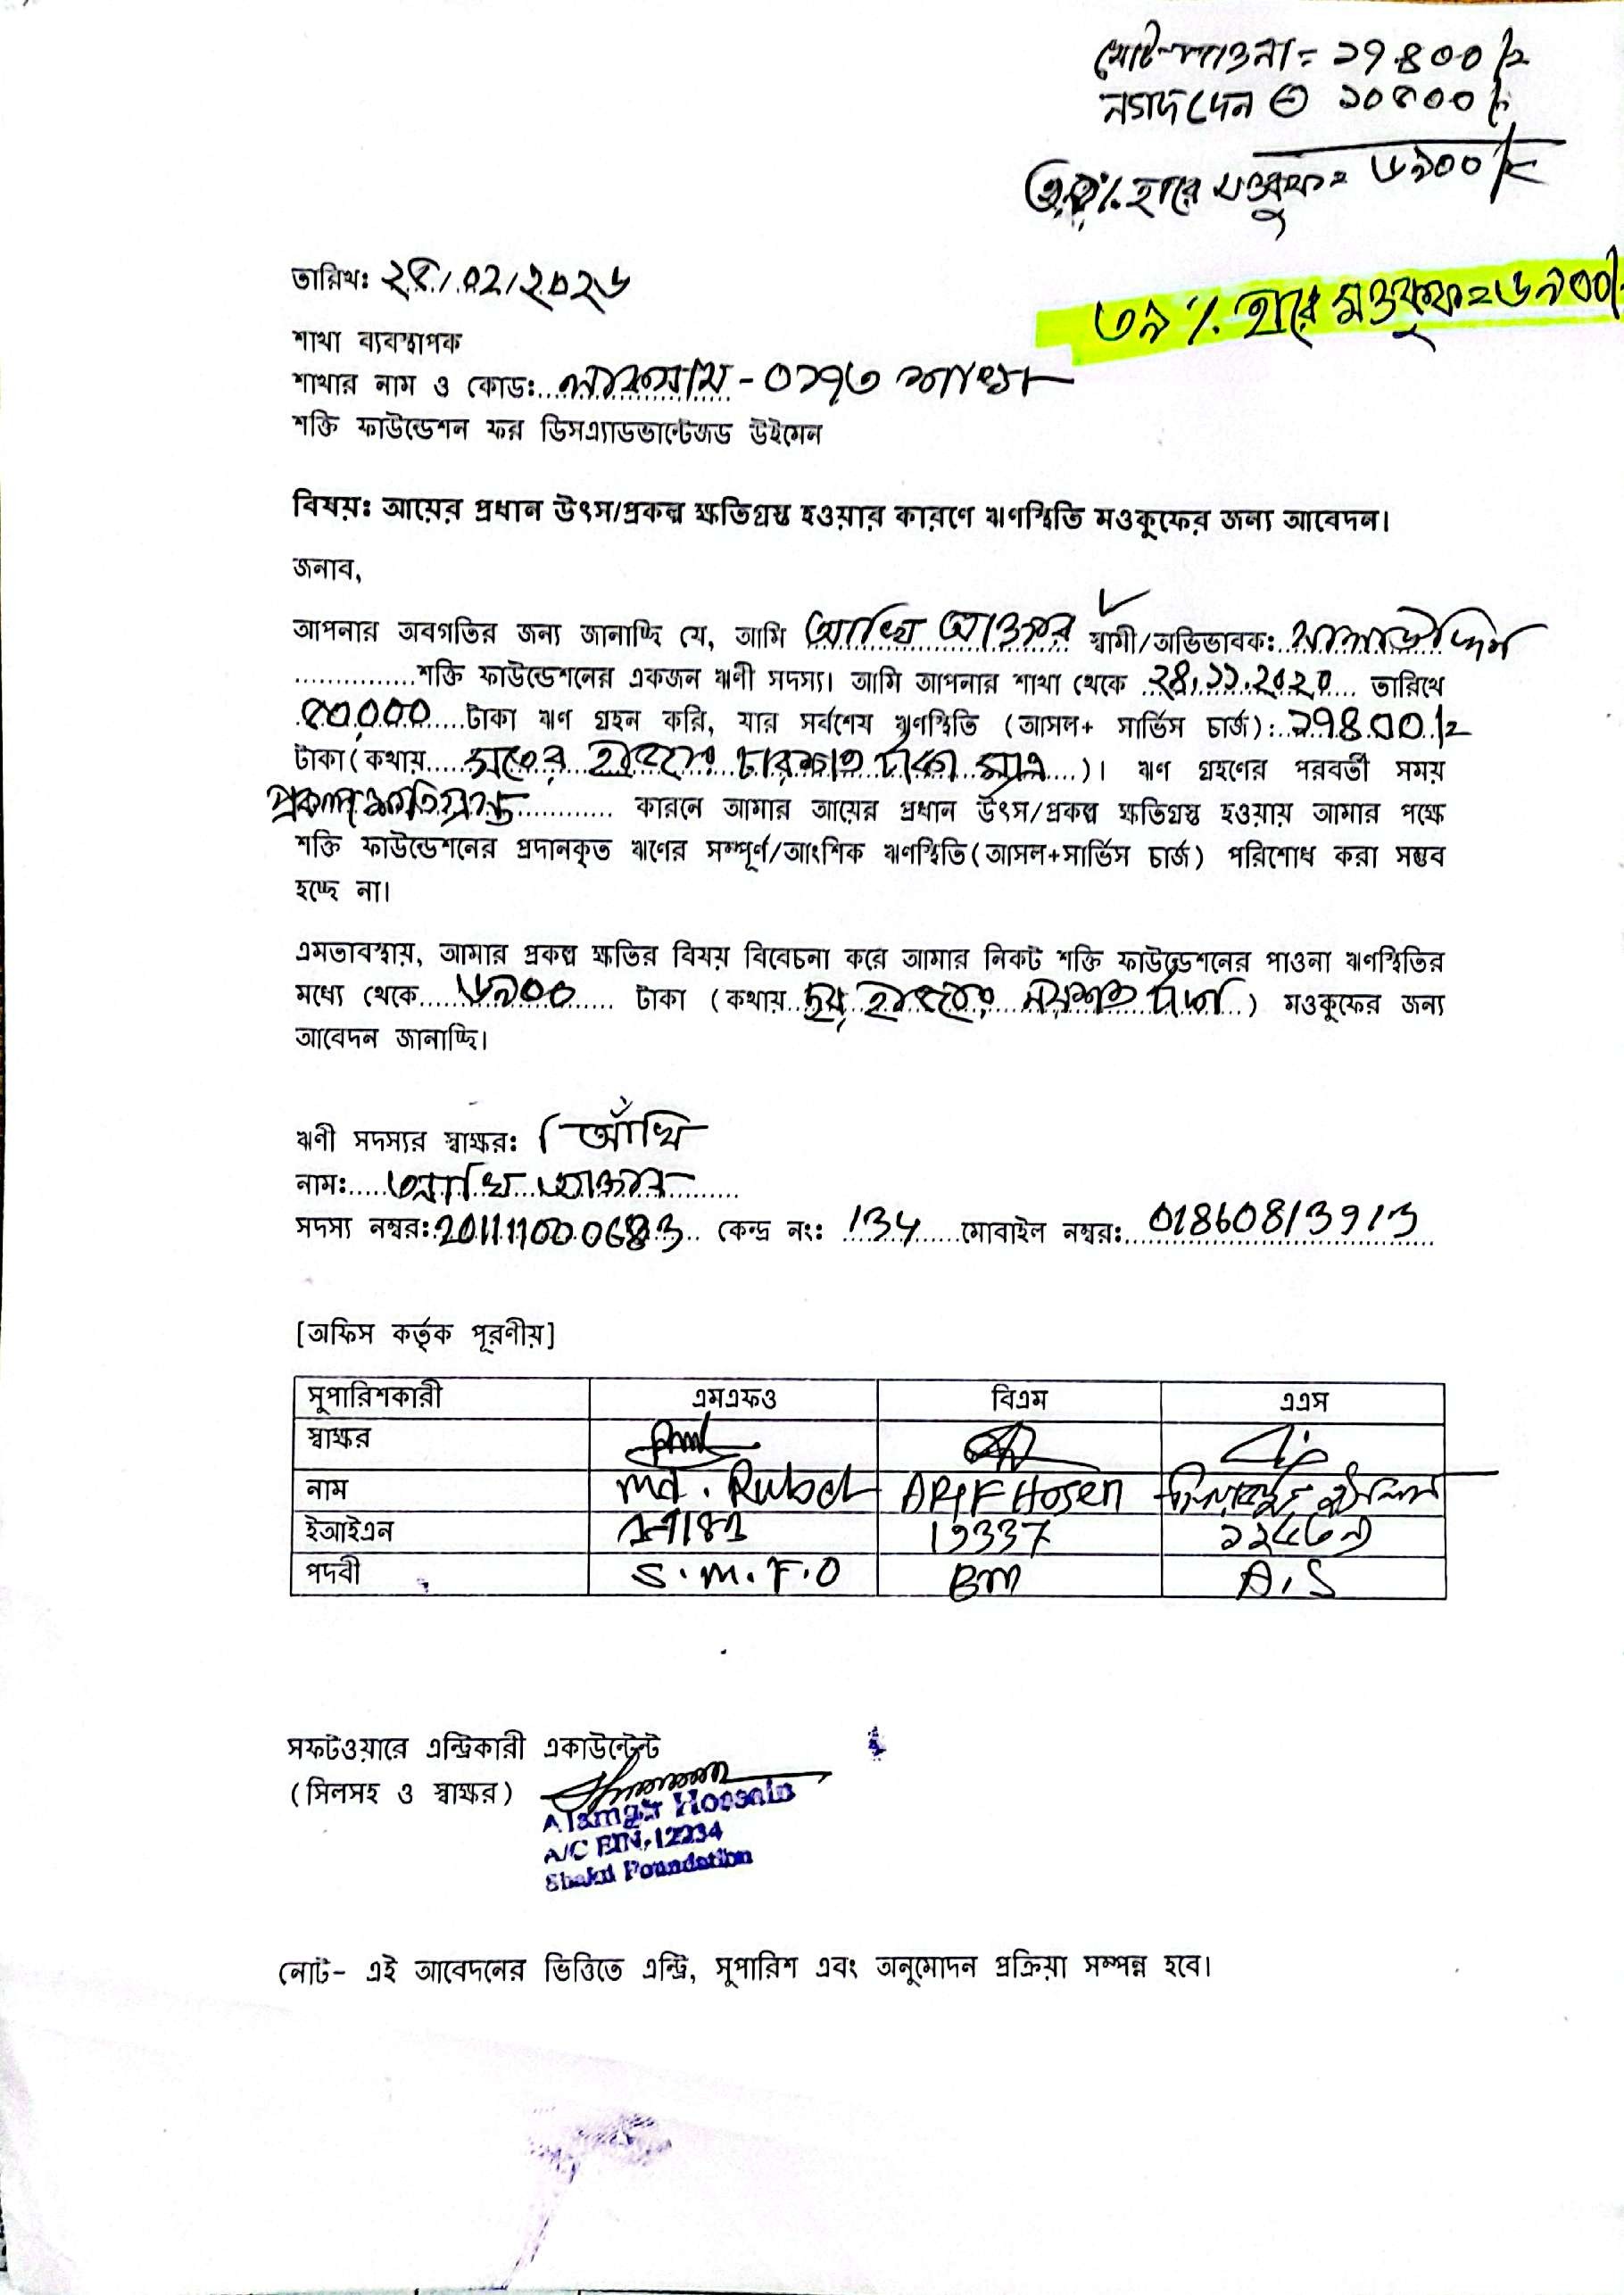 মোট পাওনা = ১৭৪০০/=
নগদ দেন ⊖ ১০৫০০/=
৩৯% হারে মওকুফ = ৬৯০০/=
তারিখঃ ২৫/০২/২০২৬
৩৯% হারে মওকুফ = ৬৯০০/-
শাখা ব্যবস্থাপক
শাখার নাম ও কোডঃ লাকসাম - ০১৭৩ শাখা
শক্তি ফাউন্ডেশন ফর ডিসএ্যাডভান্টেজড উইমেন
বিষয়ঃ আয়ের প্রধান উৎস/প্রকল্প ক্ষতিগ্রস্ত হওয়ার কারণে ঋণস্থিতি মওকুফের জন্য আবেদন।
জনাব,
আপনার অবগতির জন্য জানাচ্ছি যে, আমি আখি আক্তার স্বামী/অভিভাবক: সালাউদ্দিন
শক্তি ফাউন্ডেশনের একজন ঋণী সদস্য। আমি আপনার শাখা থেকে ২৪.১১.২০২০ তারিখে
৫০,০০০ টাকা ঋণ গ্রহন করি, যার সর্বশেষ ঋণস্থিতি (আসল+ সার্ভিস চার্জ): ১৭৪০০/=
টাকা(কথায় সতের হাজার চারশত টাকা মাত্র)। ঋণ গ্রহণের পরবর্তী সময়
প্রকল্প ক্ষতিগ্রস্ত কারনে আমার আয়ের প্রধান উৎস/প্রকল্প ক্ষতিগ্রস্ত হওয়ায় আমার পক্ষে
শক্তি ফাউন্ডেশনের প্রদানকৃত ঋণের সম্পূর্ণ/আংশিক ঋণস্থিতি(আসল+সার্ভিস চার্জ) পরিশোধ করা সম্ভব
হচ্ছে না।
এমতাবস্থায়, আমার প্রকল্প ক্ষতির বিষয় বিবেচনা করে আমার নিকট শক্তি ফাউন্ডেশনের পাওনা ঋণস্থিতির
মধ্যে থেকে ৬৯০০ টাকা (কথায় ছয় হাজার নয়শত টাকা) মওকুফের জন্য
আবেদন জানাচ্ছি।
ঋণী সদস্যর স্বাক্ষরঃ আঁখি
নামঃ আখি আক্তার
সদস্য নম্বরঃ 201111000683 কেন্দ্র নংঃ 134 মোবাইল নম্বরঃ 01860813913
[অফিস কর্তৃক পূরণীয়]
সুপারিশকারী এমএফও বিএম এএস
স্বাক্ষর
নাম Md. Rubel ARIF Hosen
ইআইএন 19337
পদবী S.M.F.O BM A.S
সফটওয়ারে এন্ট্রিকারী একাউন্টেন্ট
(সিলসহ ও স্বাক্ষর)
Alamgir Hossain
A/C EIN-12234
Shakti Foundation
নোট- এই আবেদনের ভিত্তিতে এন্ট্রি, সুপারিশ এবং অনুমোদন প্রক্রিয়া সম্পন্ন হবে।